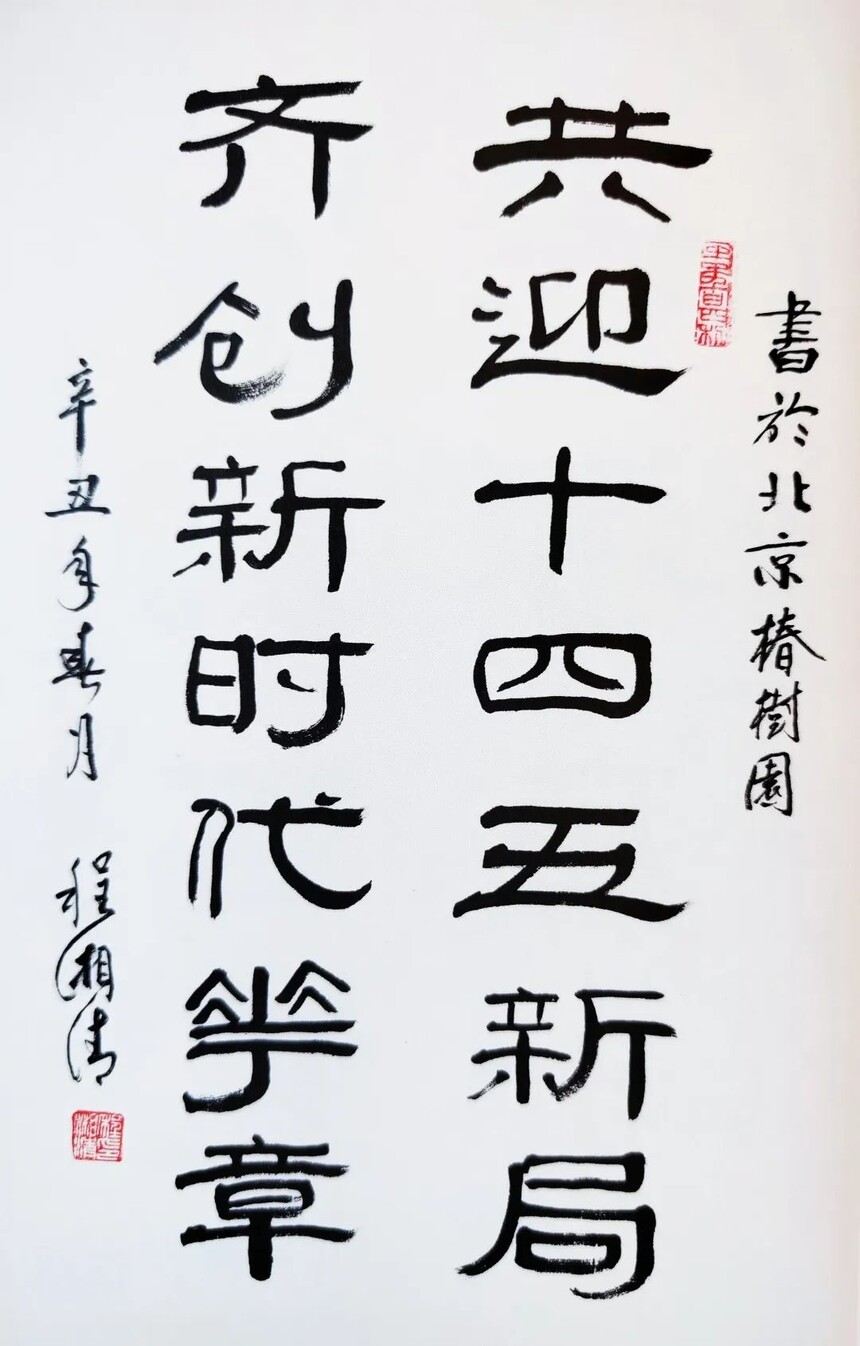 書於北京椿樹園
共迎十四五新局
齐创新时代華章
辛丑年春月 程湘清
程印湘清